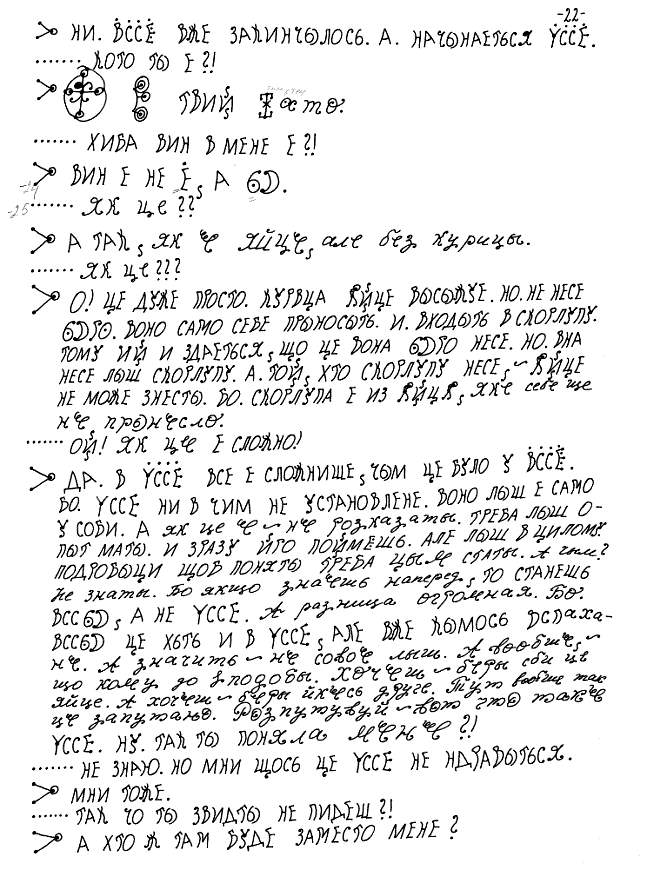 -22-
НИ. ВССЁ ВЖЕ ЗАКИНЧЫЛОСЬ. А. НАЧЫНАЕТЬСЯ УССЁ.
....... КОТО ТЫ Е?!
ТВИЙ
....... ХИБА ВИН В МЕНЕ Е?!
ВИН Е НЕ Ё, А
-25
....... ЯК ЦЕ??
А ТАК, ЯК Е ЯЙЦЕ, але без курицы.
....... ЯК ЦЕ???
О! ЦЕ ДУЖЕ ПРОСТО. КУРВЦА ЯЙЦЕ ВЫСЫЖУЕ. НО. НЕ НЕСЕ
ВОНО САМО СЕБЕ ПРЫНОСЫТЬ. И. ВХОДЫТЬ В СКОРЛУПУ.
ТОМУ ИЙ И ЗДАЕТЬСЯ, ЩО ЦЕ ВОНА НЕСЕ. НО. ВНА
НЕСЕ ЛЫШ СКОРЛУПУ. А. ТОЙ, ХТО СКОРЛУПУ НЕСЕ, ~ ЯЙЦЕ
НЕ МОЖЕ ЗНЕСТЫ. БО. СКОРЛУПА Е ИЗ ЯЙЦЯ, яке себе ще
не, пронесло.
....... ОЙ! ЯК ЦЕ Е СЛОЖНО!
ДА. В УССЁ ВСЕ Е СЛОЖНИШЕ, ЧЫМ ЦЕ БУЛО У ВССЁ.
БО. УССЕ НИ В ЧИМ НЕ УСТАНОВЛЕНЕ. ВОНО ЛЫШ Е САМО
У СОБИ. А як це е ~ не розказаты. ТРЕБА ЛЫШ О-
ПЫТ МАТЫ. И ЗРАЗУ ЙГО ПОЙМЕШЬ. АЛЕ ЛЫШ В ЦИЛОМУ.
ПОДРОБЫЦИ ЩОБ ПОНЯТЫ ТРЕБА ЦЫМ СТАТЫ. А чим?
Не знаты. Бо якщо значешь наперед, ТО СТАНЕШЬ
А НЕ УССЁ. А разница огромная. БО.
ЦЕ ХЫТЬ И В УССЁ, АЛЕ ВЖЕ КЫМОСЬ ВСПАХА-
НЕ. А значить ~ не совсе лыш. А вообще, ~
що кому до вподобы. Хочеш ~ беры сби це
яйце. А хочеш ~ беры йкесь друге. Тут вообще так
це запутано. Розпутувуй ~ вот что таке
УССЕ. НУ. ТАК ТЫ ПОНЯЛА МЕНЕ?!
....... НЕ ЗНАЮ. НО МНИ ЩОСЬ ЦЕ УССЕ НЕ НДРАВЫТЬСЯ.
МНИ ТОЖЕ.
....... ТАК ЧО ТЫ ЗВИДТЫ НЕ ПИДЕШ?!
А ХТО Ж ТАМ БУДЕ ЗАМЕСТО МЕНЕ?